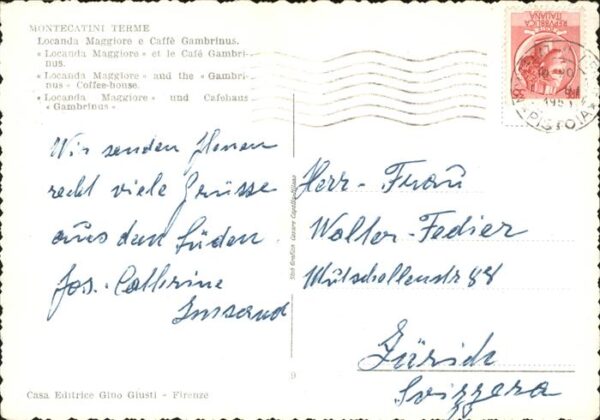 MONTECATINI TERME
Locanda Maggiore e Caffè Gambrinus.
« Locanda Maggiore » et le Café Gambri-
nus.
« Locanda Maggiore » and the « Gambri-
nus - Coffee-house.
« Locanda Maggiore » und Cafehaus
« Gambrinus »
REPVBBLICA
ITALIANA
PISTOIA
Wir senden Ihnen
recht viele Grüsse
aus dem Süden.
Jos. Cathrine
Herr - Frau
Walter - Fedier
Mutschellenstr 88
Zürich
Svizzera
9
Casa Editrice Gino Giusti - Firenze